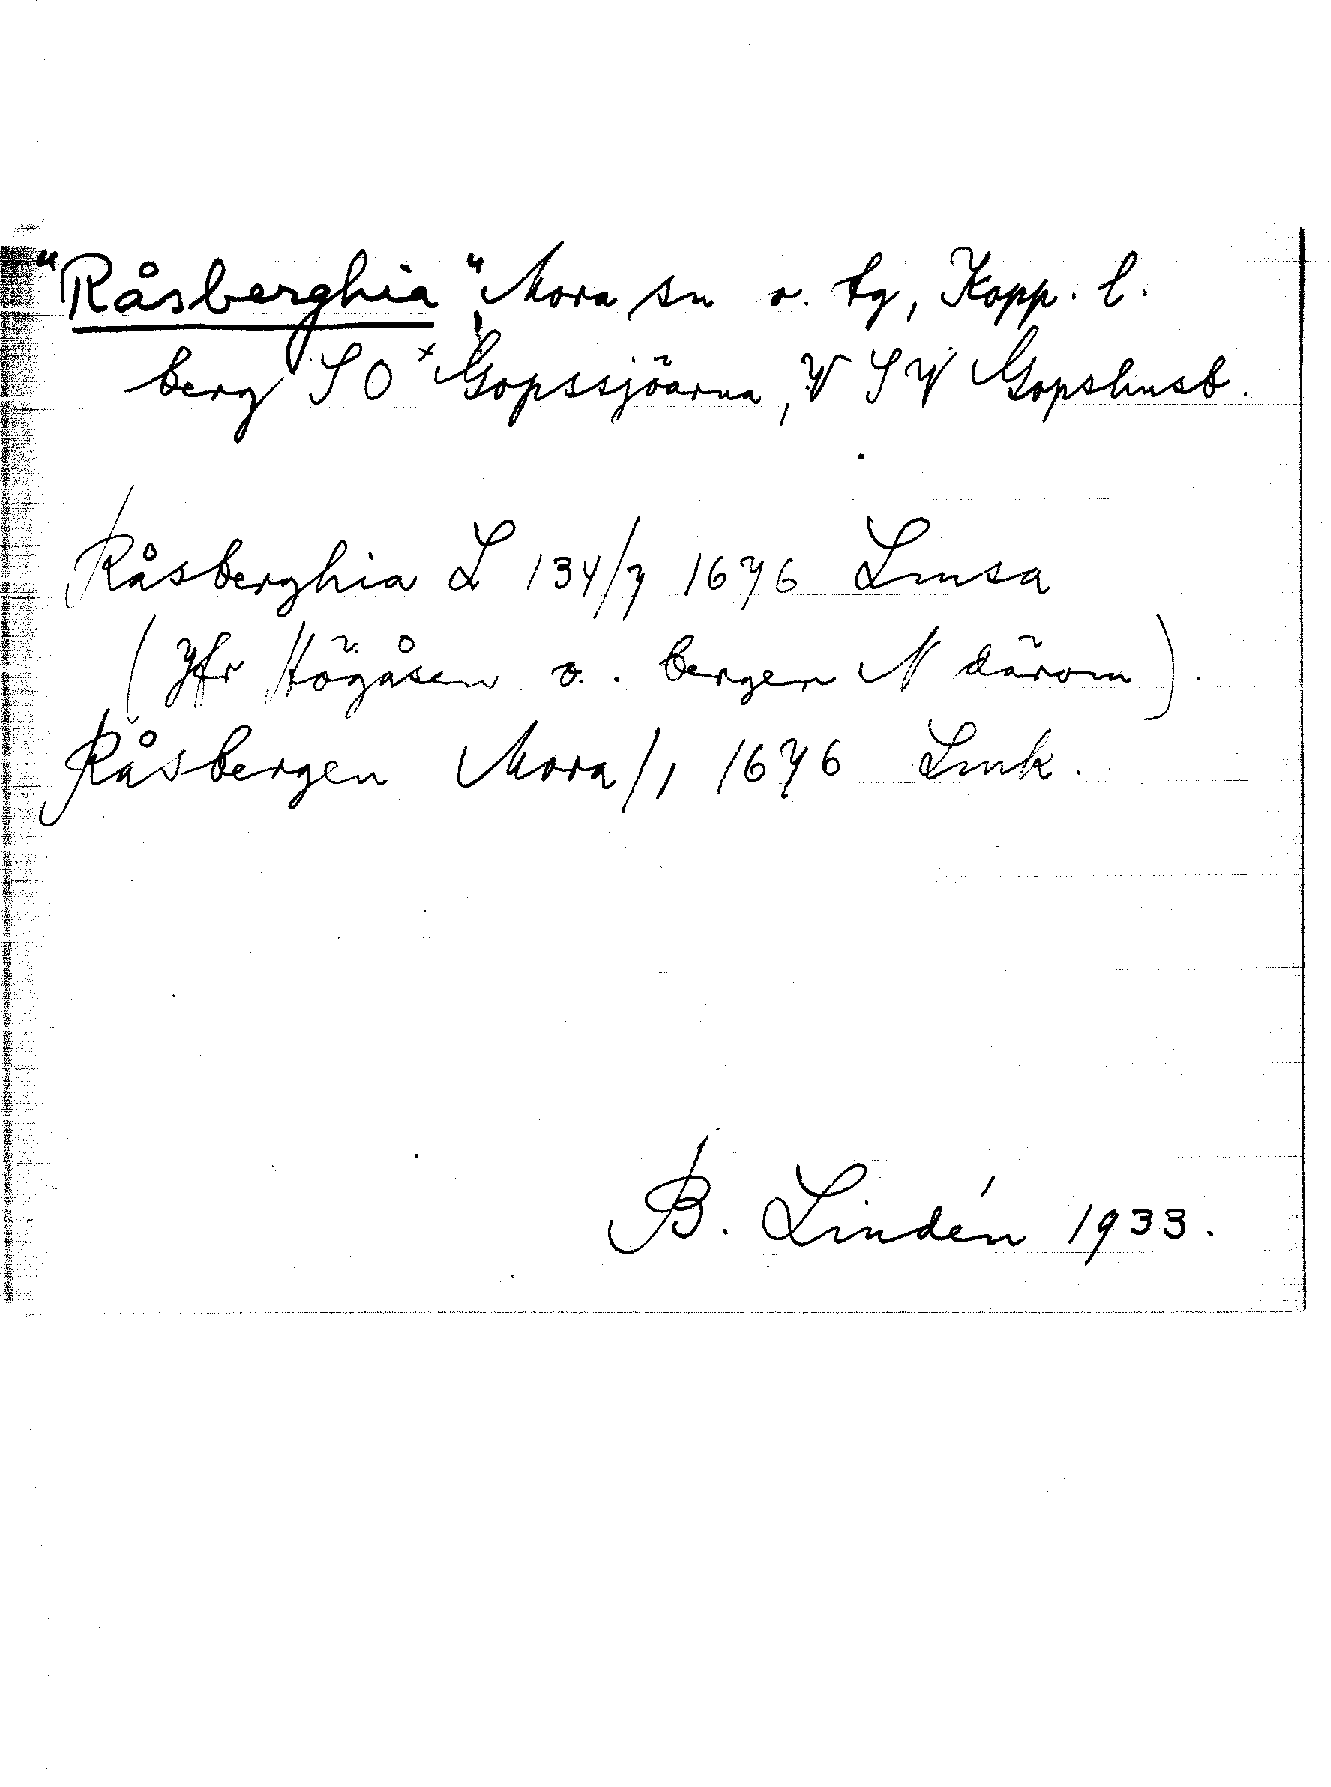 "Råsberghia", Mora sn o. tg, Kopp. l.
berg SO ˣGopssjöarna, V SV Gopshusb.
Råsberghia L 134/7 1676 Lmsa
(Jfr Högåsen o. bergen N därom).
Råsbergen Mora/1 1676 Lmk.
B. Lindén 1933.